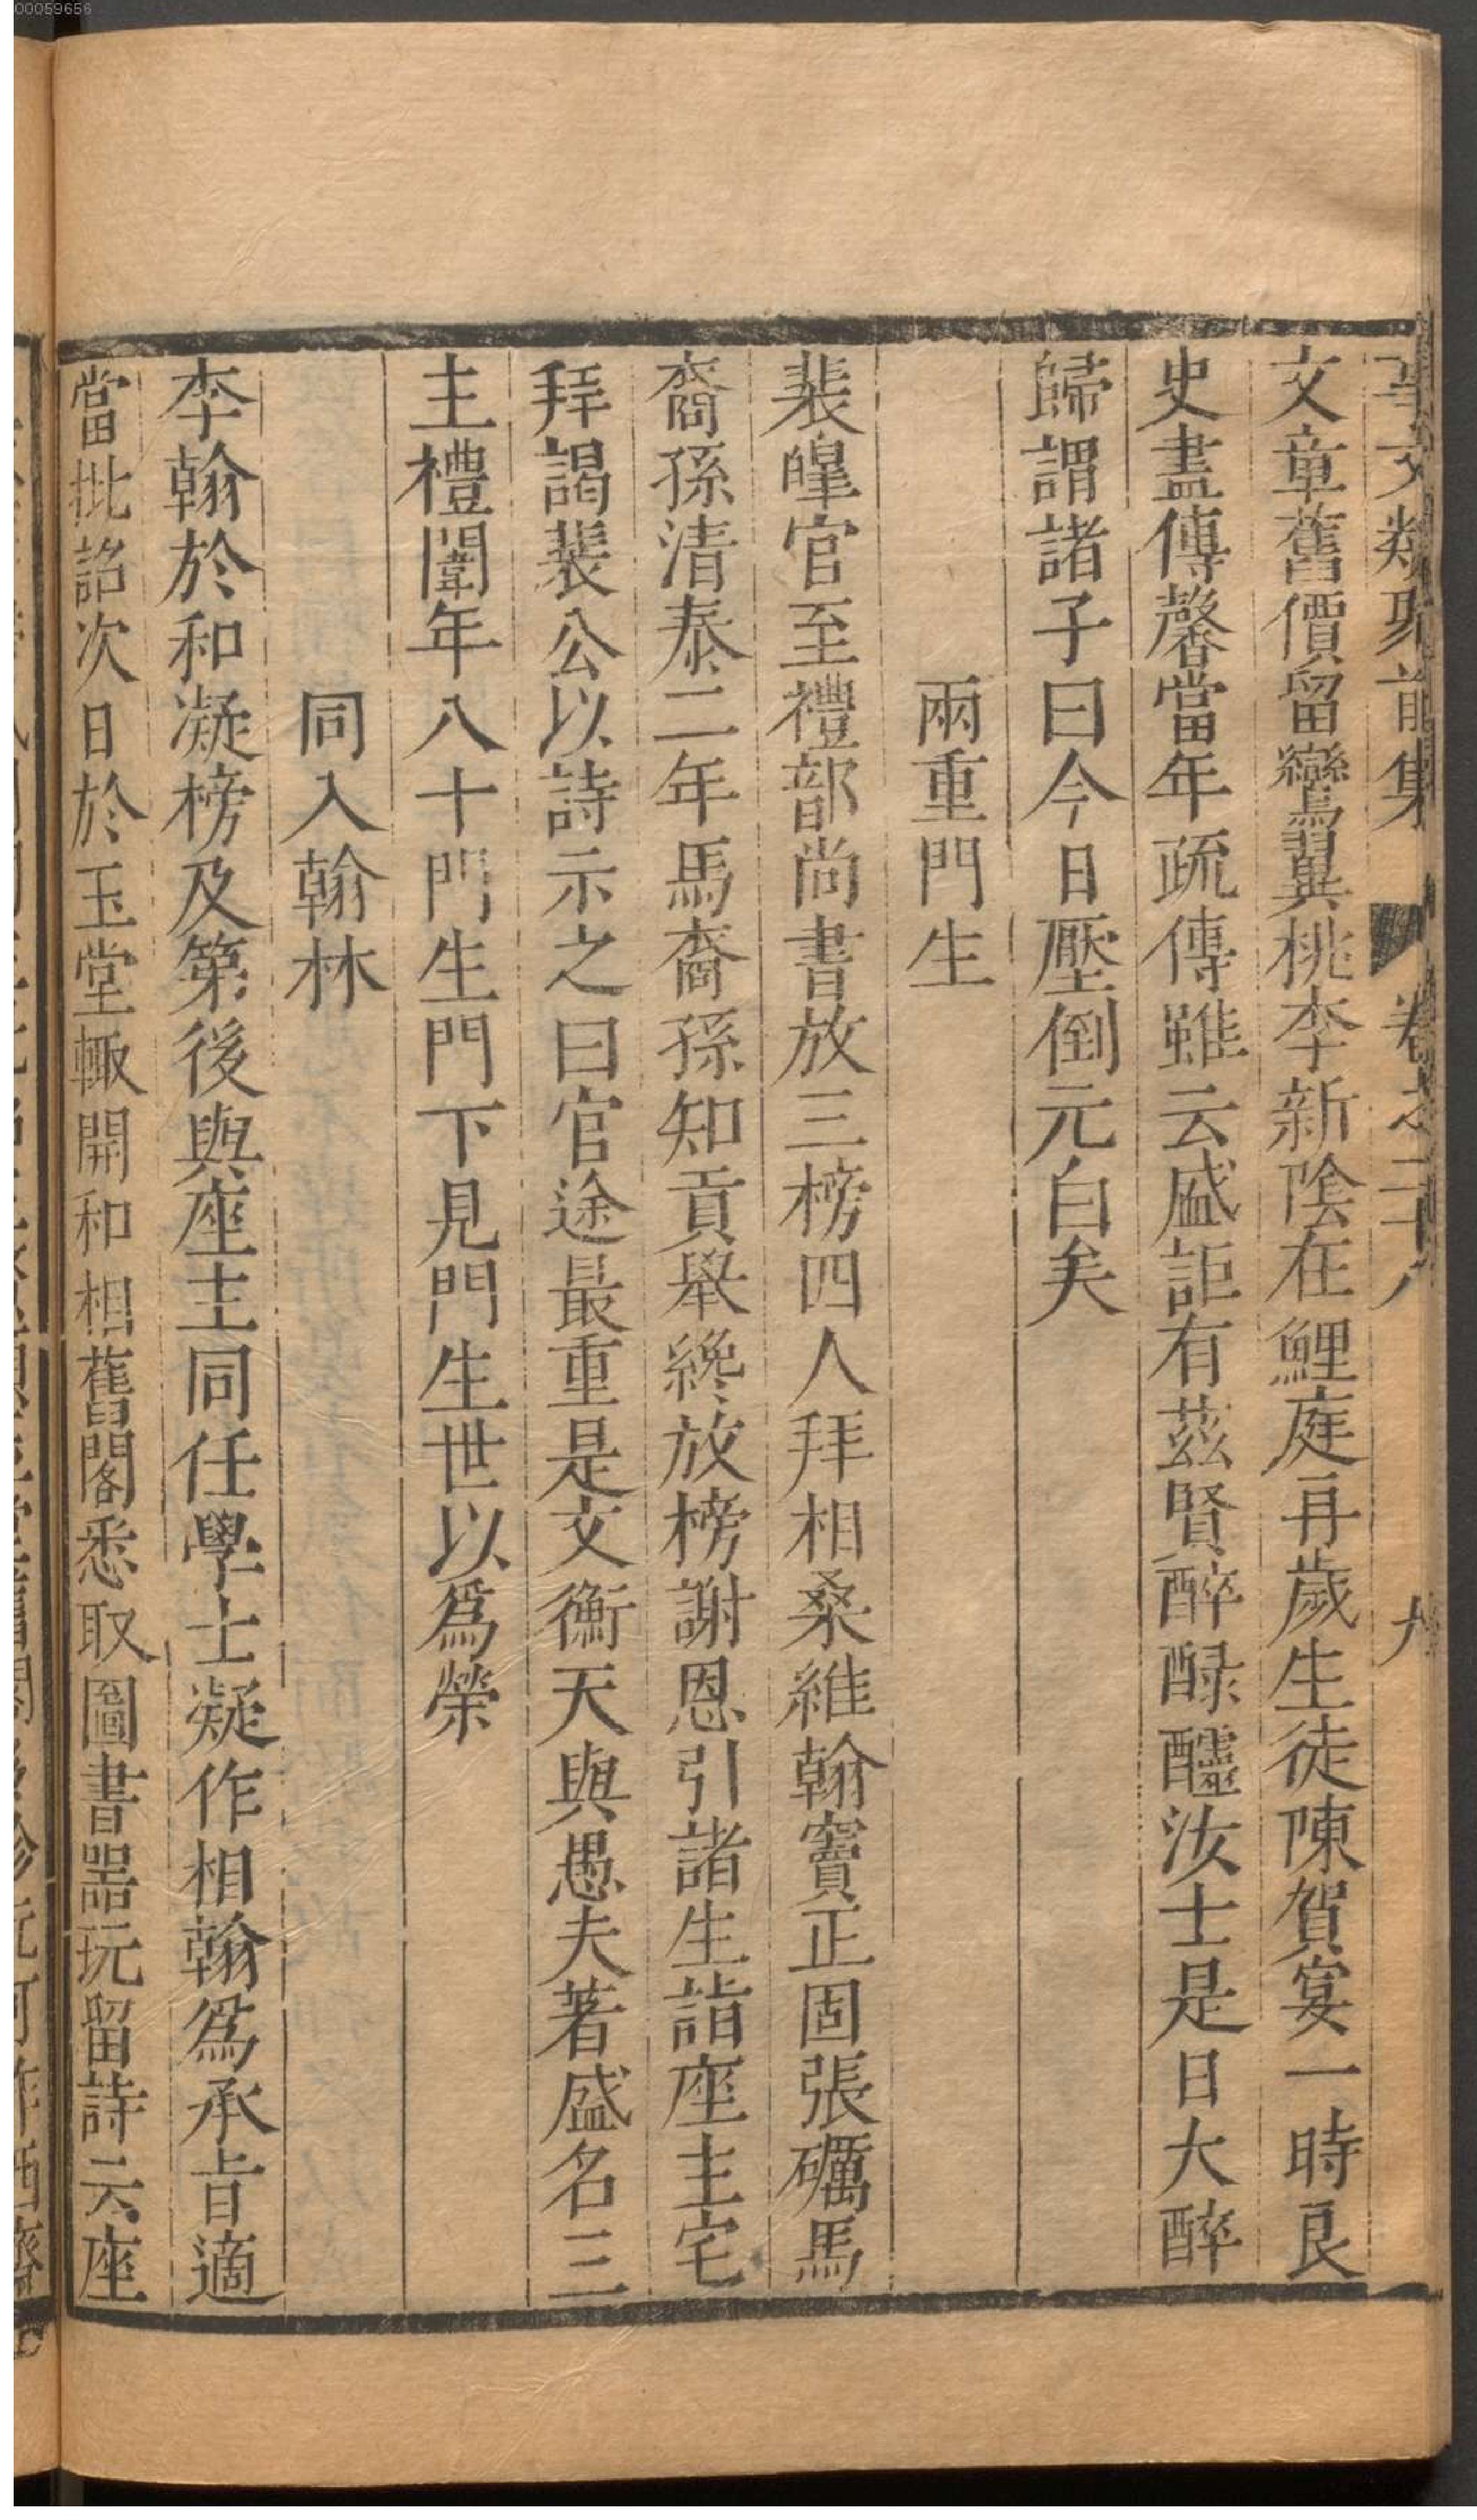 00059656
事文類聚前集 卷之二十八 九
文章舊價留鸞翼桃李新陰在鯉庭再歲生徒陳賀宴一時良
史盡傳馨當年疏傳雖云盛詎有茲賢醉醁醽汝士是日大醉
歸謂諸子曰今日壓倒元白矣
兩重門生
裴皡官至禮部尚書放三榜四人拜相桑維翰竇正固張礪馬
裔孫清泰二年馬裔孫知貢舉纔放榜謝恩引諸生詣座主宅
拜謁裴公以詩示之曰官途最重是文衡天與愚夫著盛名三
主禮闈年八十門生門下見門生世以爲榮
同入翰林
李翰於和凝榜及第後與座主同任學士凝作相翰爲承旨適
當批詔次日於玉堂輙開和相舊閣悉取圖書噐玩留詩云座